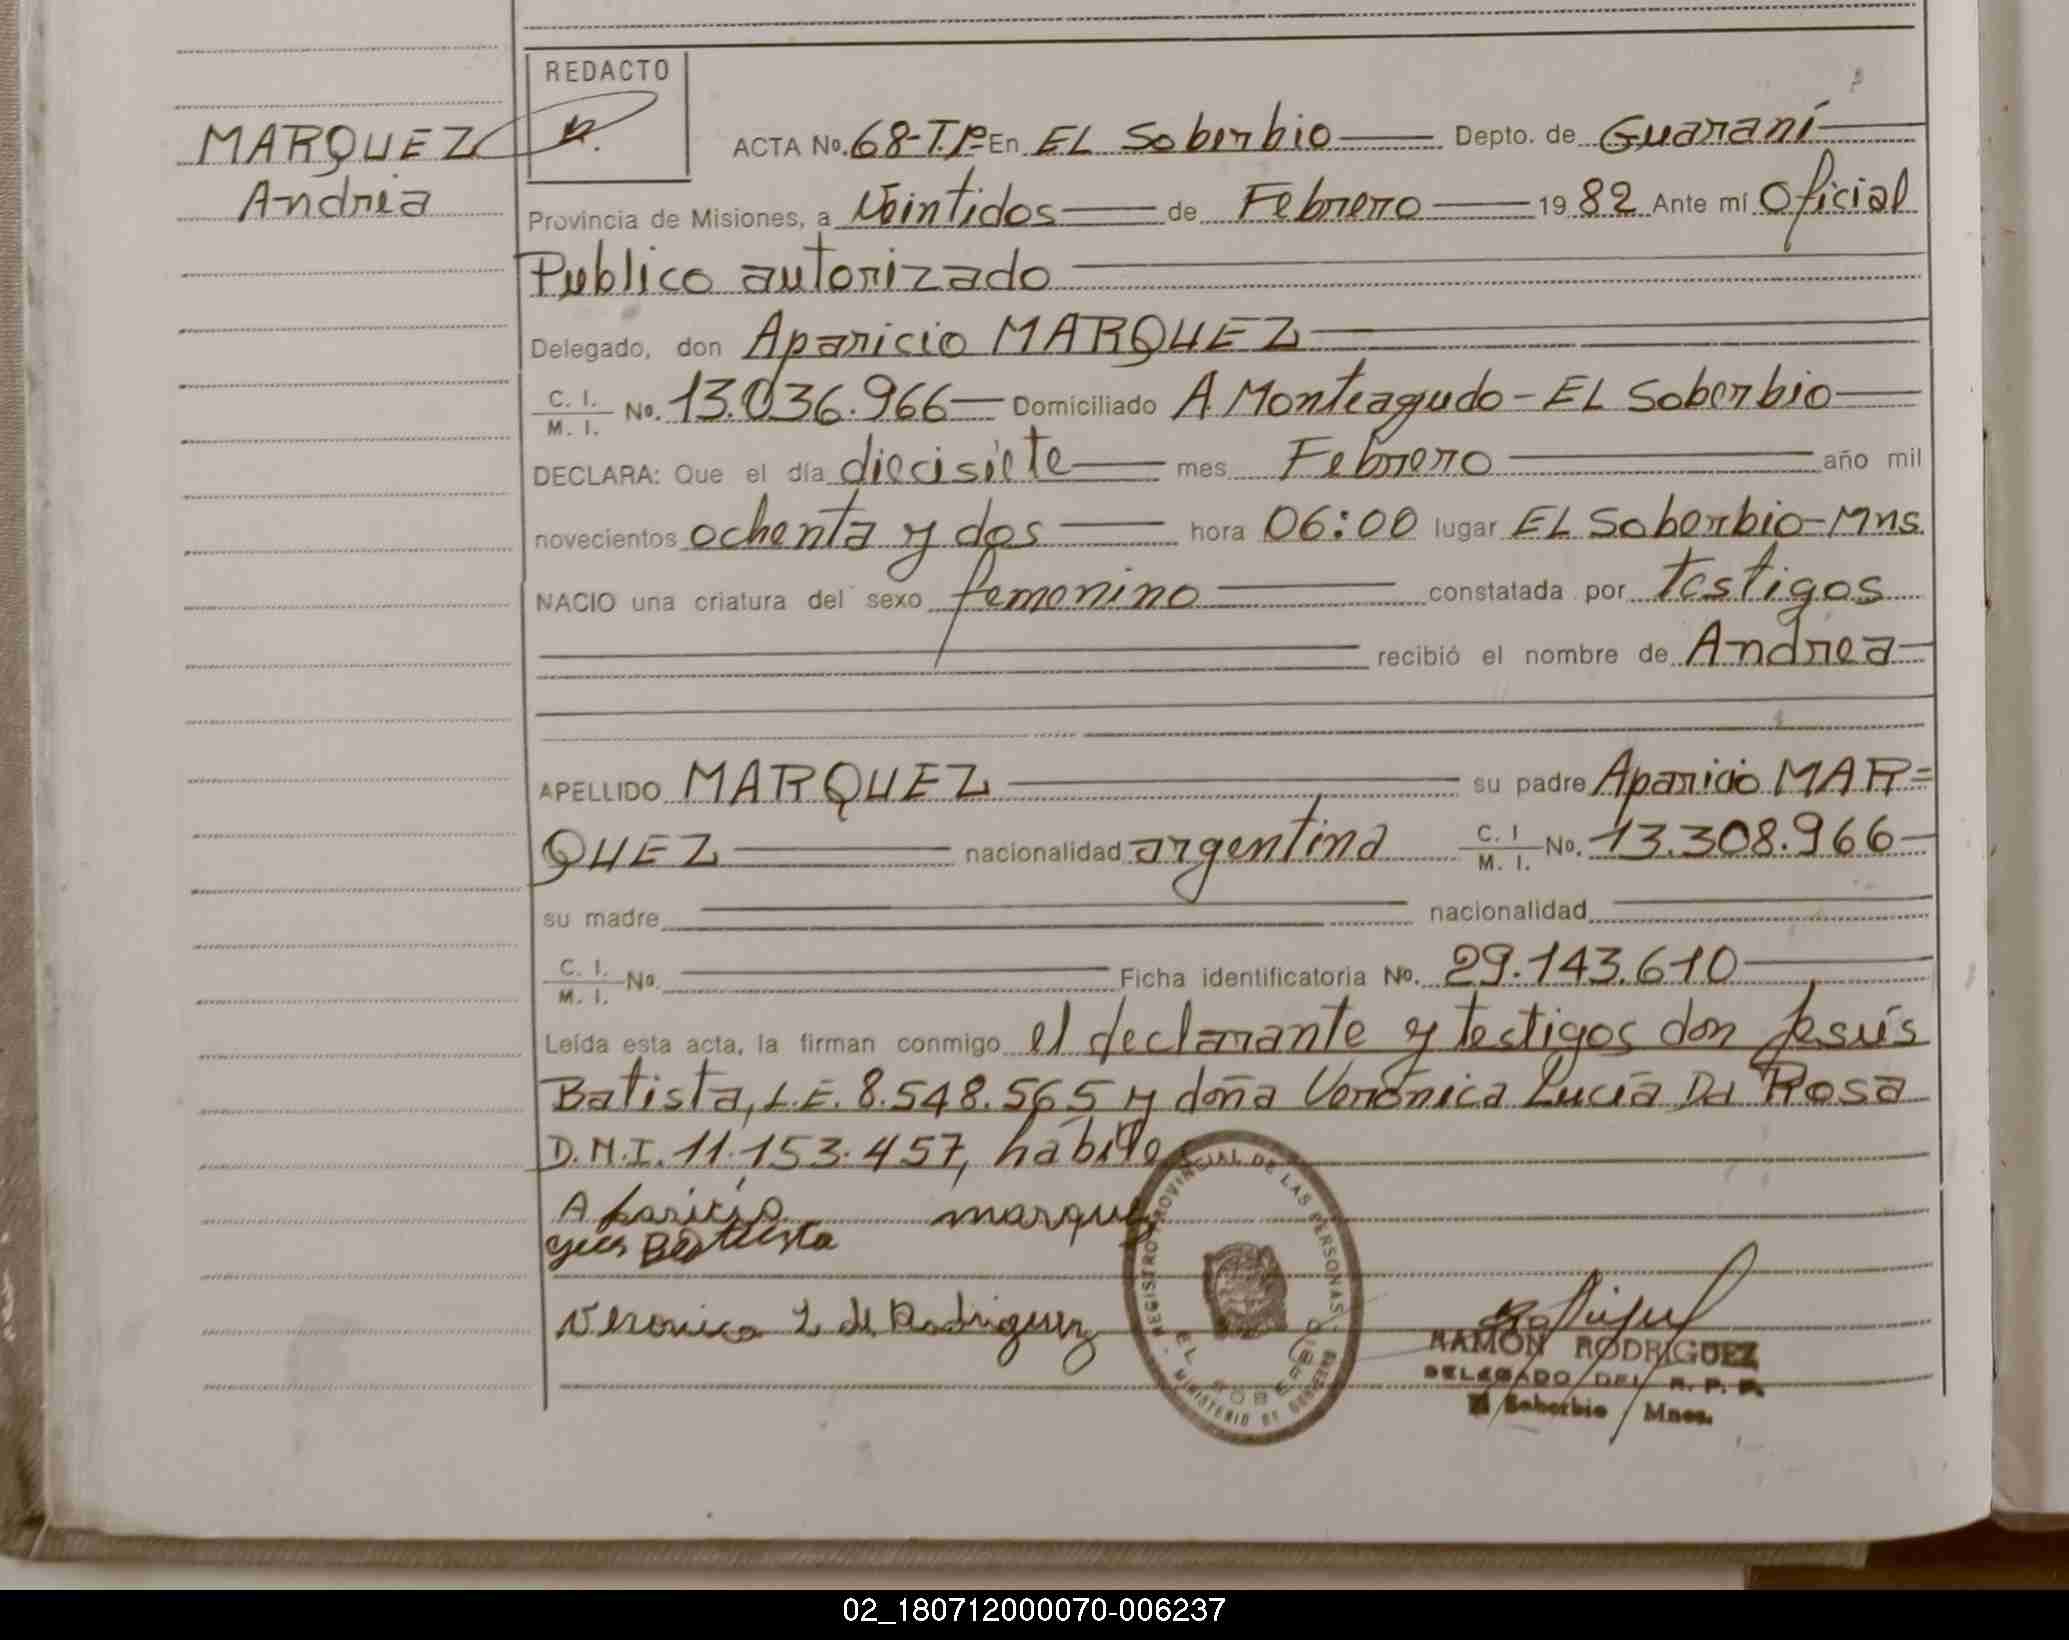 REDACTO
MARQUEZ
Andrea
ACTA No. 68-T.Iº En EL Soberbio Depto. de Guaraní
Provincia de Misiones, a Veintidos de Febrero 1982 Ante mí Oficial
Publico autorizado
Delegado, don Aparicio MARQUEZ
C. I. / M. I. No. 13.036.966 Domiciliado A. Monteagudo - EL Soberbio
DECLARA: Que el día diecisiete mes Febrero año mil
novecientos ochenta y dos hora 06:00 lugar EL Soberbio-Mns.
NACIO una criatura del sexo femenino constatada por testigos
recibió el nombre de Andrea
APELLIDO MARQUEZ su padre Aparicio MAR=
QUEZ nacionalidad argentina C. I / M. I. No. 13.308.966
su madre nacionalidad
C. I. / M. I. No. Ficha identificatoria No. 29.143.610
Leída esta acta, la firman conmigo el declarante y testigos don Jesús
Batista, L.E. 8.548.565 y doña Verónica Lucía Da Rosa
D.N.I. 11.153.457, habiles
Aparicio marquez
Batista
Veronica L de Rodriguez
REGISTRO PROVINCIAL DE LAS PERSONAS
EL SOBERBIO
MINISTERIO DE GOBIERNO
RAMON RODRIGUEZ
DELEGADO DEL R. P. P.
El Soberbio Mnes.
02_180712000070-006237